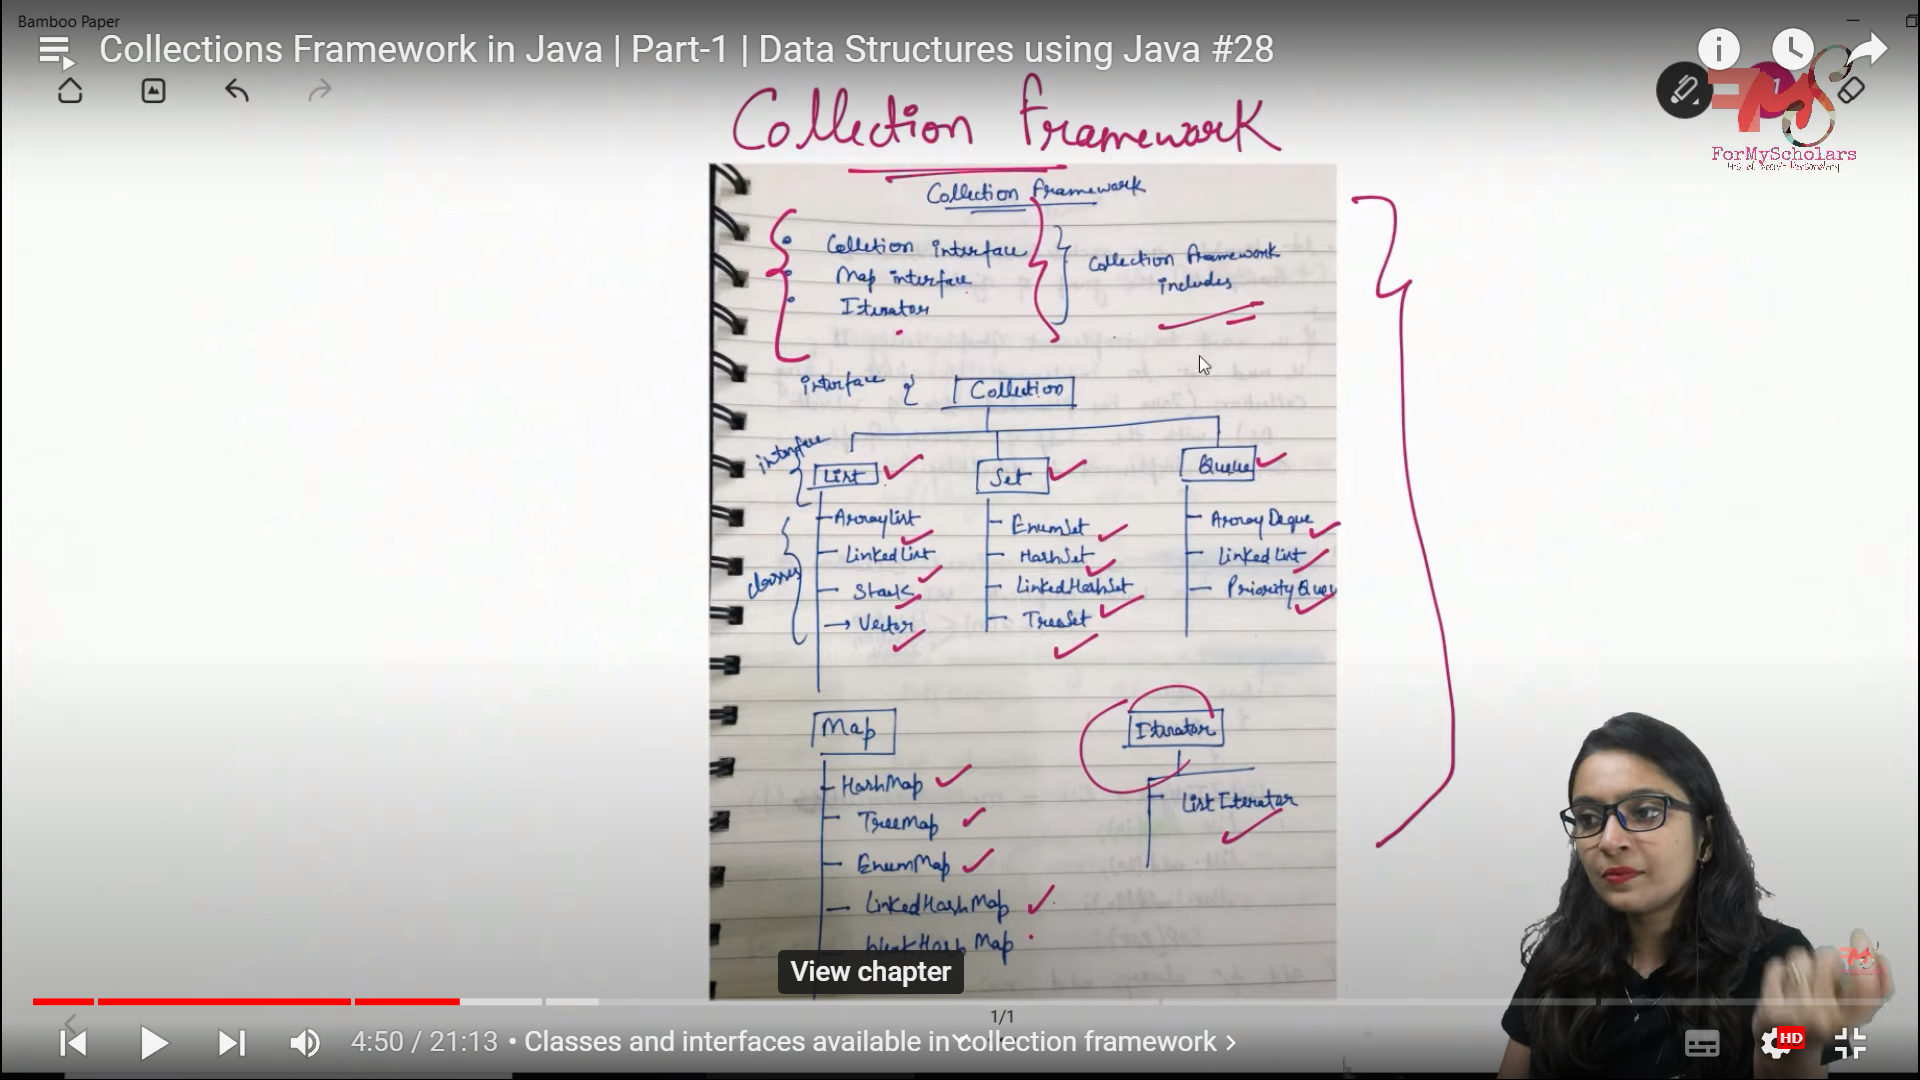 Bamboo Paper
Collections Framework in Java | Part-1 | Data Structures using Java #28
Collection Framework
ForMyScholars
Collection Framework
Colletion interface
Map interface
Iterator
Collection Framework
includes
interface
Collection
interface
List
Set
Queue
classes
ArrayList
LinkedList
Stack
Vector
EnumSet
HashSet
LinkedHashSet
TreeSet
ArrayDeque
LinkedList
PriorityQueu
Map
HashMap
TreeMap
EnumMap
LinkedHashMap
Hash Map
Iterator
ListIterator
View chapter
1/1
4:50 / 21:13 • Classes and interfaces available in collection framework
HD